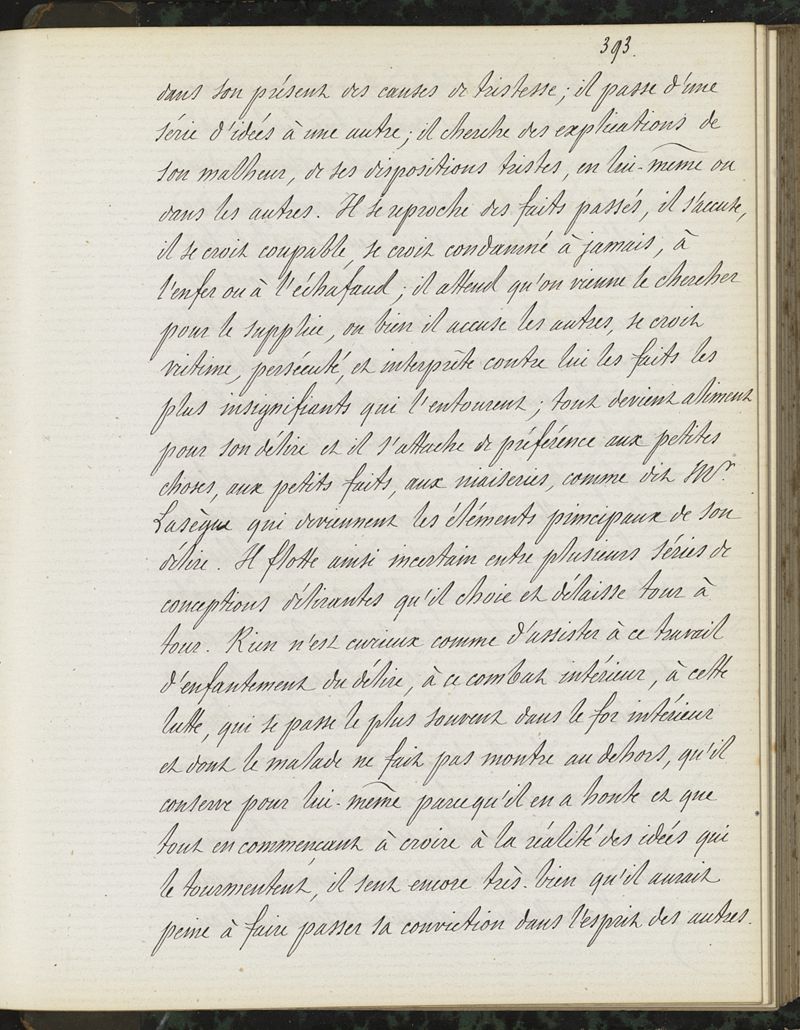 393.
dans son présent des causes de tristesse; il passe d'une
série d'idées à une autre; il cherche des explications de
son malheur, de ses dispositions tristes, en lui-même ou
dans les autres. Il se reproche des faits passés, il s'accuse,
il se croit coupable, se croit condamné à jamais, à
l'enfer ou à l'échafaud; il attend qu'on vienne le chercher
pour le supplice, ou bien il accuse les autres, se croit
victime, persécuté, et interprète contre lui les faits les
plus insignifiants qui l'entourent; tout devient aliment
pour son délire et il s'attache de préférence aux petites
choses, aux petits faits, aux niaiseries, comme dit Mr.
Lasègue qui deviennent les éléments principaux de son
délire. Il flotte ainsi incertain entre plusieurs séries de
conceptions délirantes qu'il choie et délaisse tour à
tour. Rien n'est curieux comme d'assister à ce travail
d'enfantement du délire, à ce combat intérieur, à cette
lutte, qui se passe le plus souvent dans le for intérieur
et dont le malade ne fait pas montre au dehors, qu'il
conserve pour lui-même parce qu'il en a honte et que
tout en commençant à croire à la réalité des idées qui
le tourmentent, il sent encore très-bien qu'il aurait
peine à faire passer sa conviction dans l'esprit des autres.